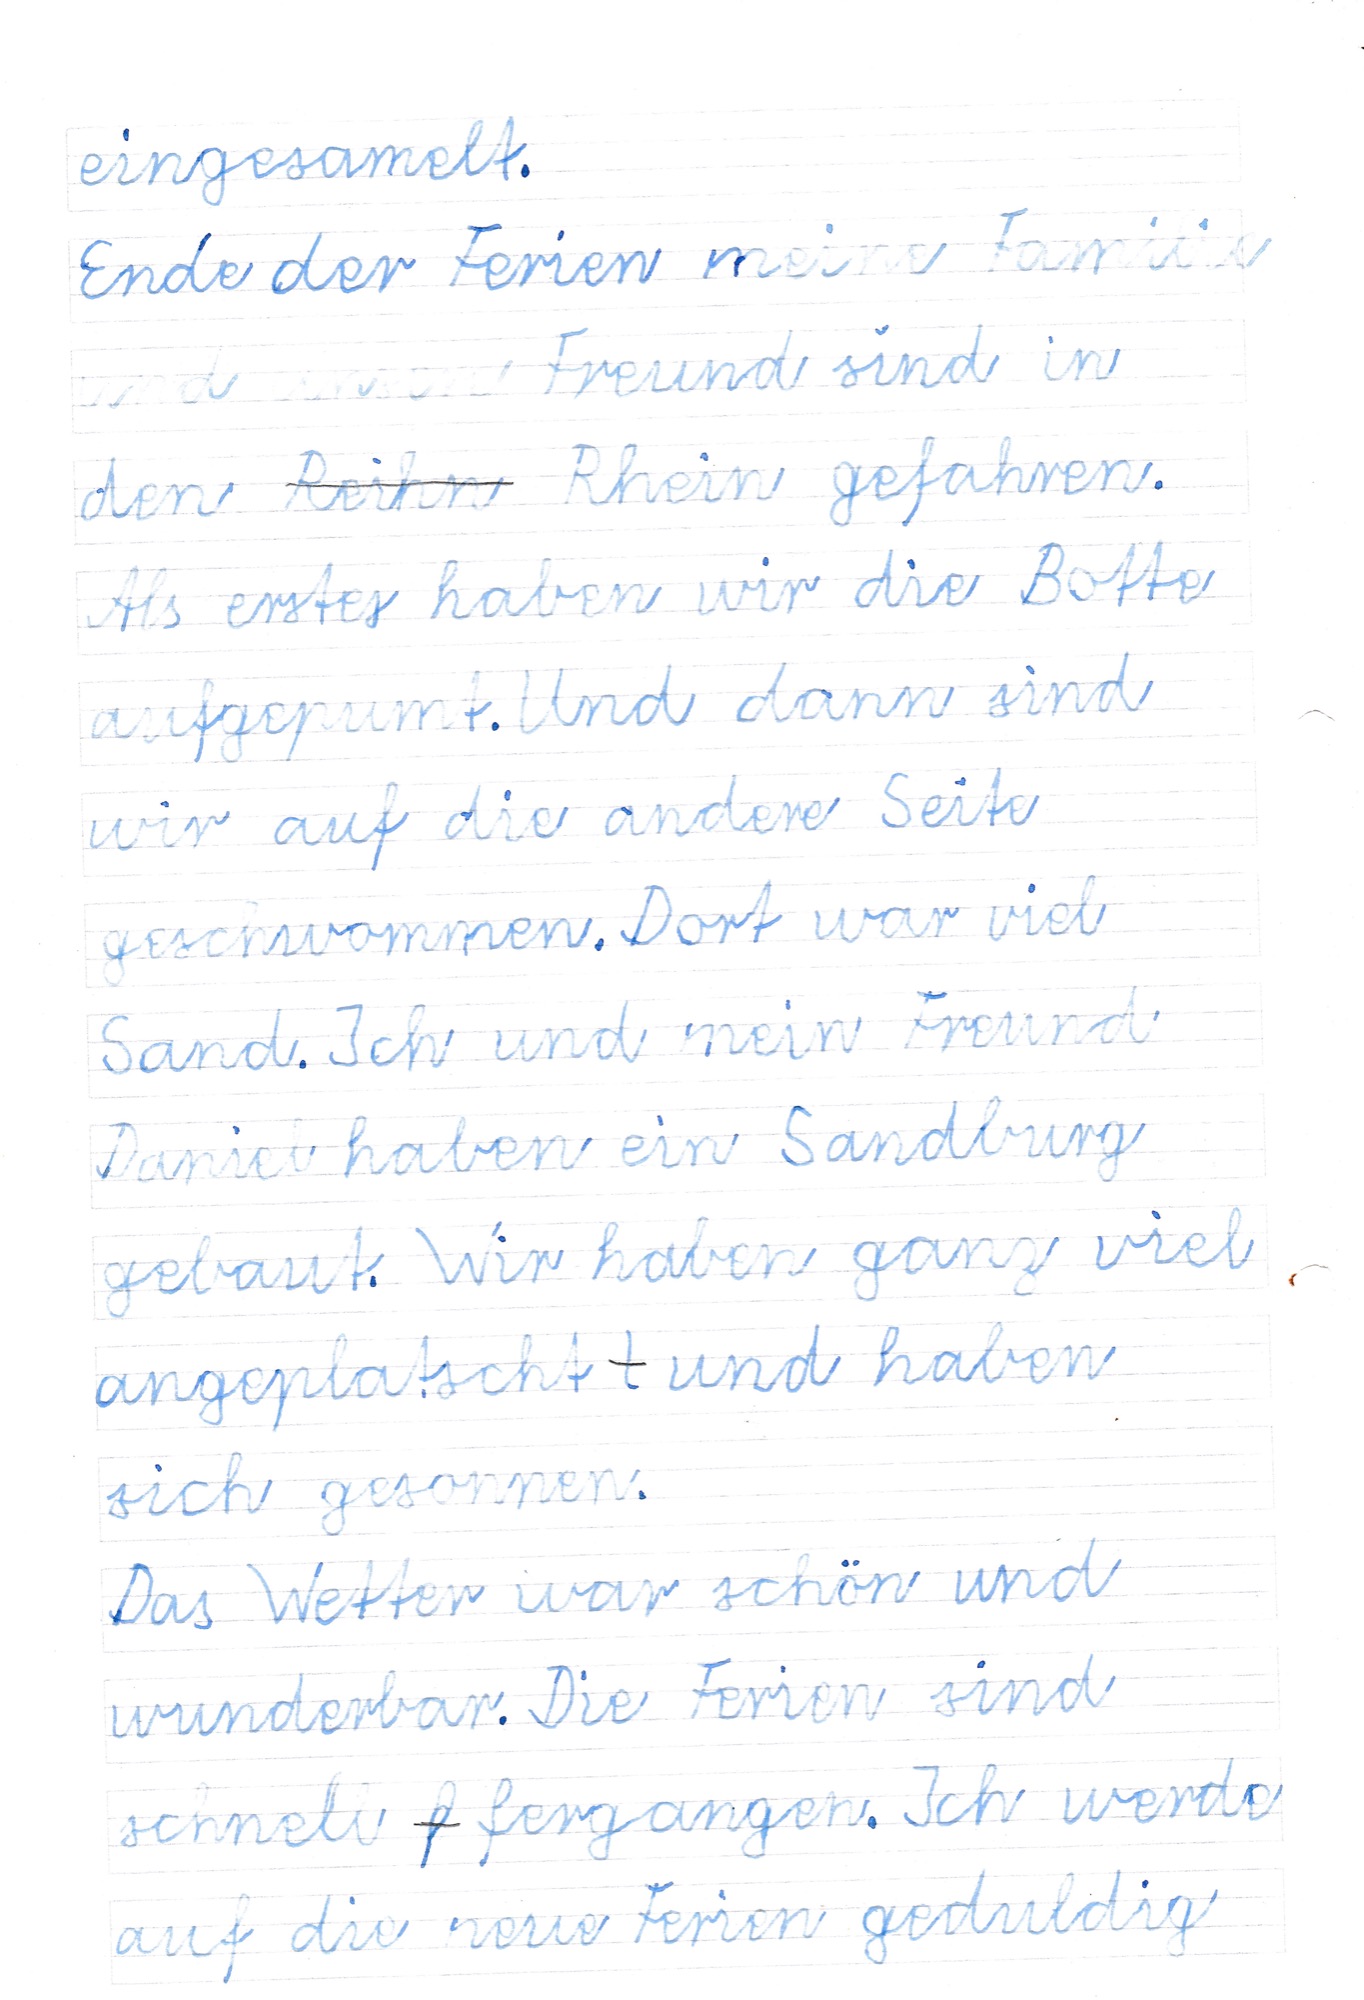 eingesamelt.
Ende der Ferien meine Familie
und unser Freund sind in
den Reihn Rhein gefahren.
Als erstes haben wir die Botte
aufgepumt. Und dann sind
wir auf die andere Seite
geschwommen. Dort war viel
Sand. Ich und mein Freund
Daniel haben ein Sandburg
gebaut. Wir haben ganz viel
angeplatscht t und haben
sich gesonnen.
Das Wetter war schön und
wunderbar. Die Ferien sind
schnell f fergangen. Ich werde
auf die neue Ferien geduldig